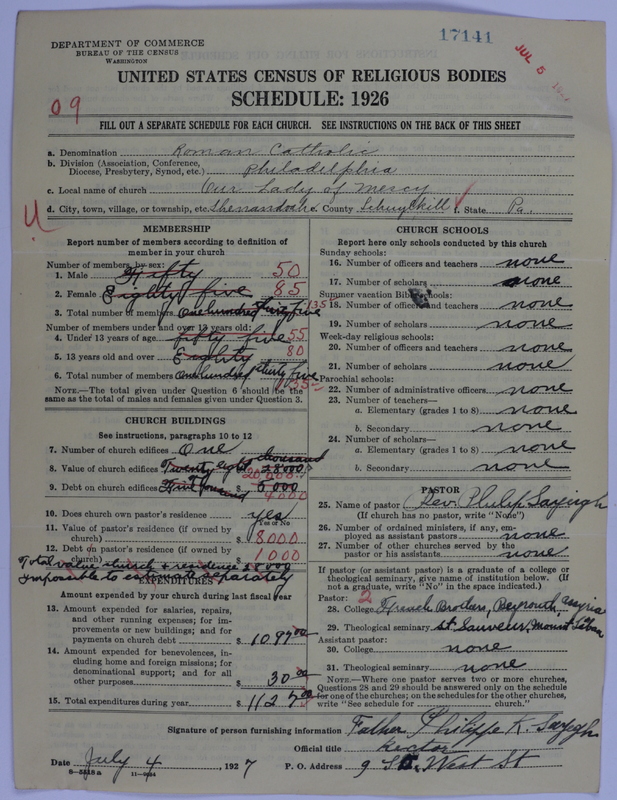 17141
JUL 5
DEPARTMENT OF COMMERCE
BUREAU OF THE CENSUS
WASHINGTON
UNITED STATES CENSUS OF RELIGIOUS BODIES
SCHEDULE: 1926
09
FILL OUT A SEPARATE SCHEDULE FOR EACH CHURCH. SEE INSTRUCTIONS ON THE BACK OF THIS SHEET
a. Denomination Roman Catholic
b. Division (Association, Conference, Diocese, Presbytery, Synod, etc.) Philadelphia
c. Local name of church Our Lady of Mercy
d. City, town, village, or township, etc. Shenandoah e. County Schuylkill f. State Pa.
MEMBERSHIP
Report number of members according to definition of member in your church
Number of members, by sex:
1. Male Fifty 50
2. Female Eighty five 85
3. Total number of members One hundred thirty five 135
Number of members under and over 13 years old:
4. Under 13 years of age fifty five 55
5. 13 years old and over Eighty 80
6. Total number of members One hundred thirty five 135
NOTE.—The total given under Question 6 should be the same as the total of males and females given under Question 3.
CHURCH BUILDINGS
See instructions, paragraphs 10 to 12
7. Number of church edifices One
8. Value of church edifices Twenty eight thousand 28000 20,000
9. Debt on church edifices Five thousand 5000 4000
10. Does church own pastor's residence yes
Yes or No
11. Value of pastor's residence (if owned by church) $ 8000
12. Debt on pastor's residence (if owned by church) 1000
Total value church & residence 28000
impossible to estimate separately
EXPENDITURES
Amount expended by your church during last fiscal year
13. Amount expended for salaries, repairs, and other running expenses; for improvements or new buildings; and for payments on church debt $ 1097 00
14. Amount expended for benevolences, including home and foreign missions; for denominational support; and for all other purposes $ 30 00
15. Total expenditures during year $ 1127 00
CHURCH SCHOOLS
Report here only schools conducted by this church
Sunday schools:
16. Number of officers and teachers none
17. Number of scholars none
Summer vacation Bible schools:
18. Number of officers and teachers none
19. Number of scholars none
Week-day religious schools:
20. Number of officers and teachers none
21. Number of scholars none
Parochial schools:
22. Number of administrative officers none
23. Number of teachers—
a. Elementary (grades 1 to 8) none
b. Secondary none
24. Number of scholars—
a. Elementary (grades 1 to 8) none
b. Secondary none
PASTOR
25. Name of pastor Rev. Philip Sayeigh
(If church has no pastor, write "None")
26. Number of ordained ministers, if any, employed as assistant pastors none
27. Number of other churches served by the pastor or his assistants none
If pastor (or assistant pastor) is a graduate of a college or theological seminary, give name of institution below. (If not a graduate, write "No" in the space indicated.)
Pastor: 2
28. College French Brothers, Beyrouth, Assyria
29. Theological seminary St Sauveur, Mount Liban
Assistant pastor:
30. College none
31. Theological seminary none
NOTE.—Where one pastor serves two or more churches, Questions 28 and 29 should be answered only on the schedule for one of the churches; on the schedules for the other churches, write "See schedule for church."
Signature of person furnishing information Father Philippe K. Sayegh
Official title Rector
Date July 4, 1927 P. O. Address 9 So. West St
8—5518 a 11—9164